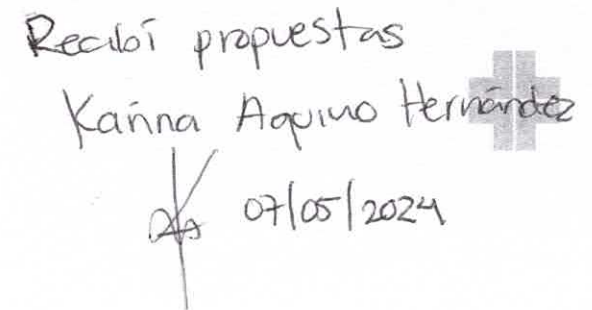 Recibí propuestas
Karina Aquino Hernández
07/05/2024